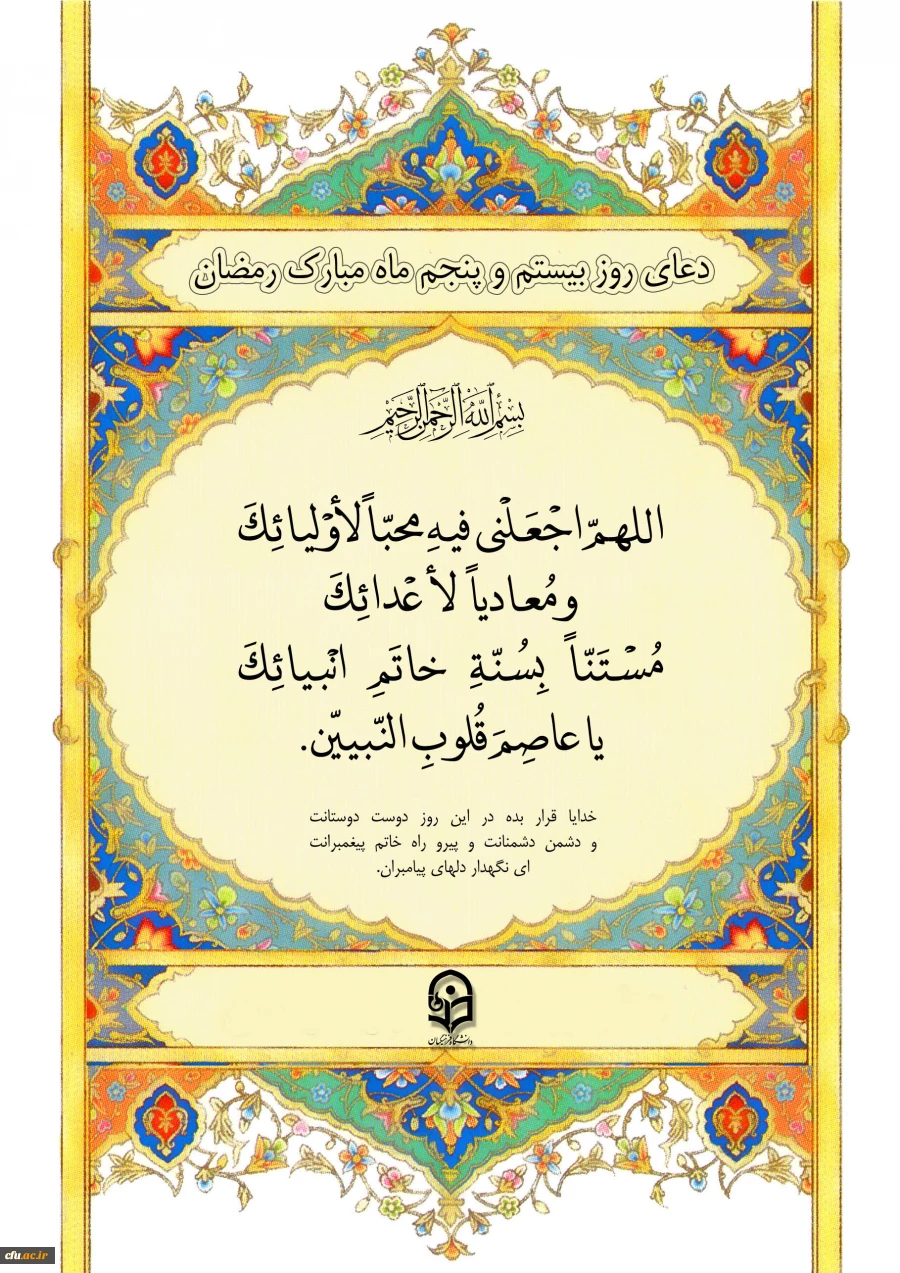 دعای روز بیستم و پنجم ماه مبارک رمضان
بِسْمِ اللَّهِ الرَّحْمَنِ الرَّحِيمِ
اللهمّ اجْعَلْنی فیهِ محبّاً لأوْلیائِكَ
ومُعادیاً لأعْدائِكَ
مُسْتَنّاً بِسُنّةِ خاتَمِ انْبیائِكَ
یا عاصِمَ قُلوبِ النّبییّن.
خدایا قرار بده در این روز دوست دوستانت
و دشمن دشمنانت و پیرو راه خاتم پیغمبرانت
ای نگهدار دلهای پیامبران.
دانشگاه فرهنگیان
cfu.ac.ir